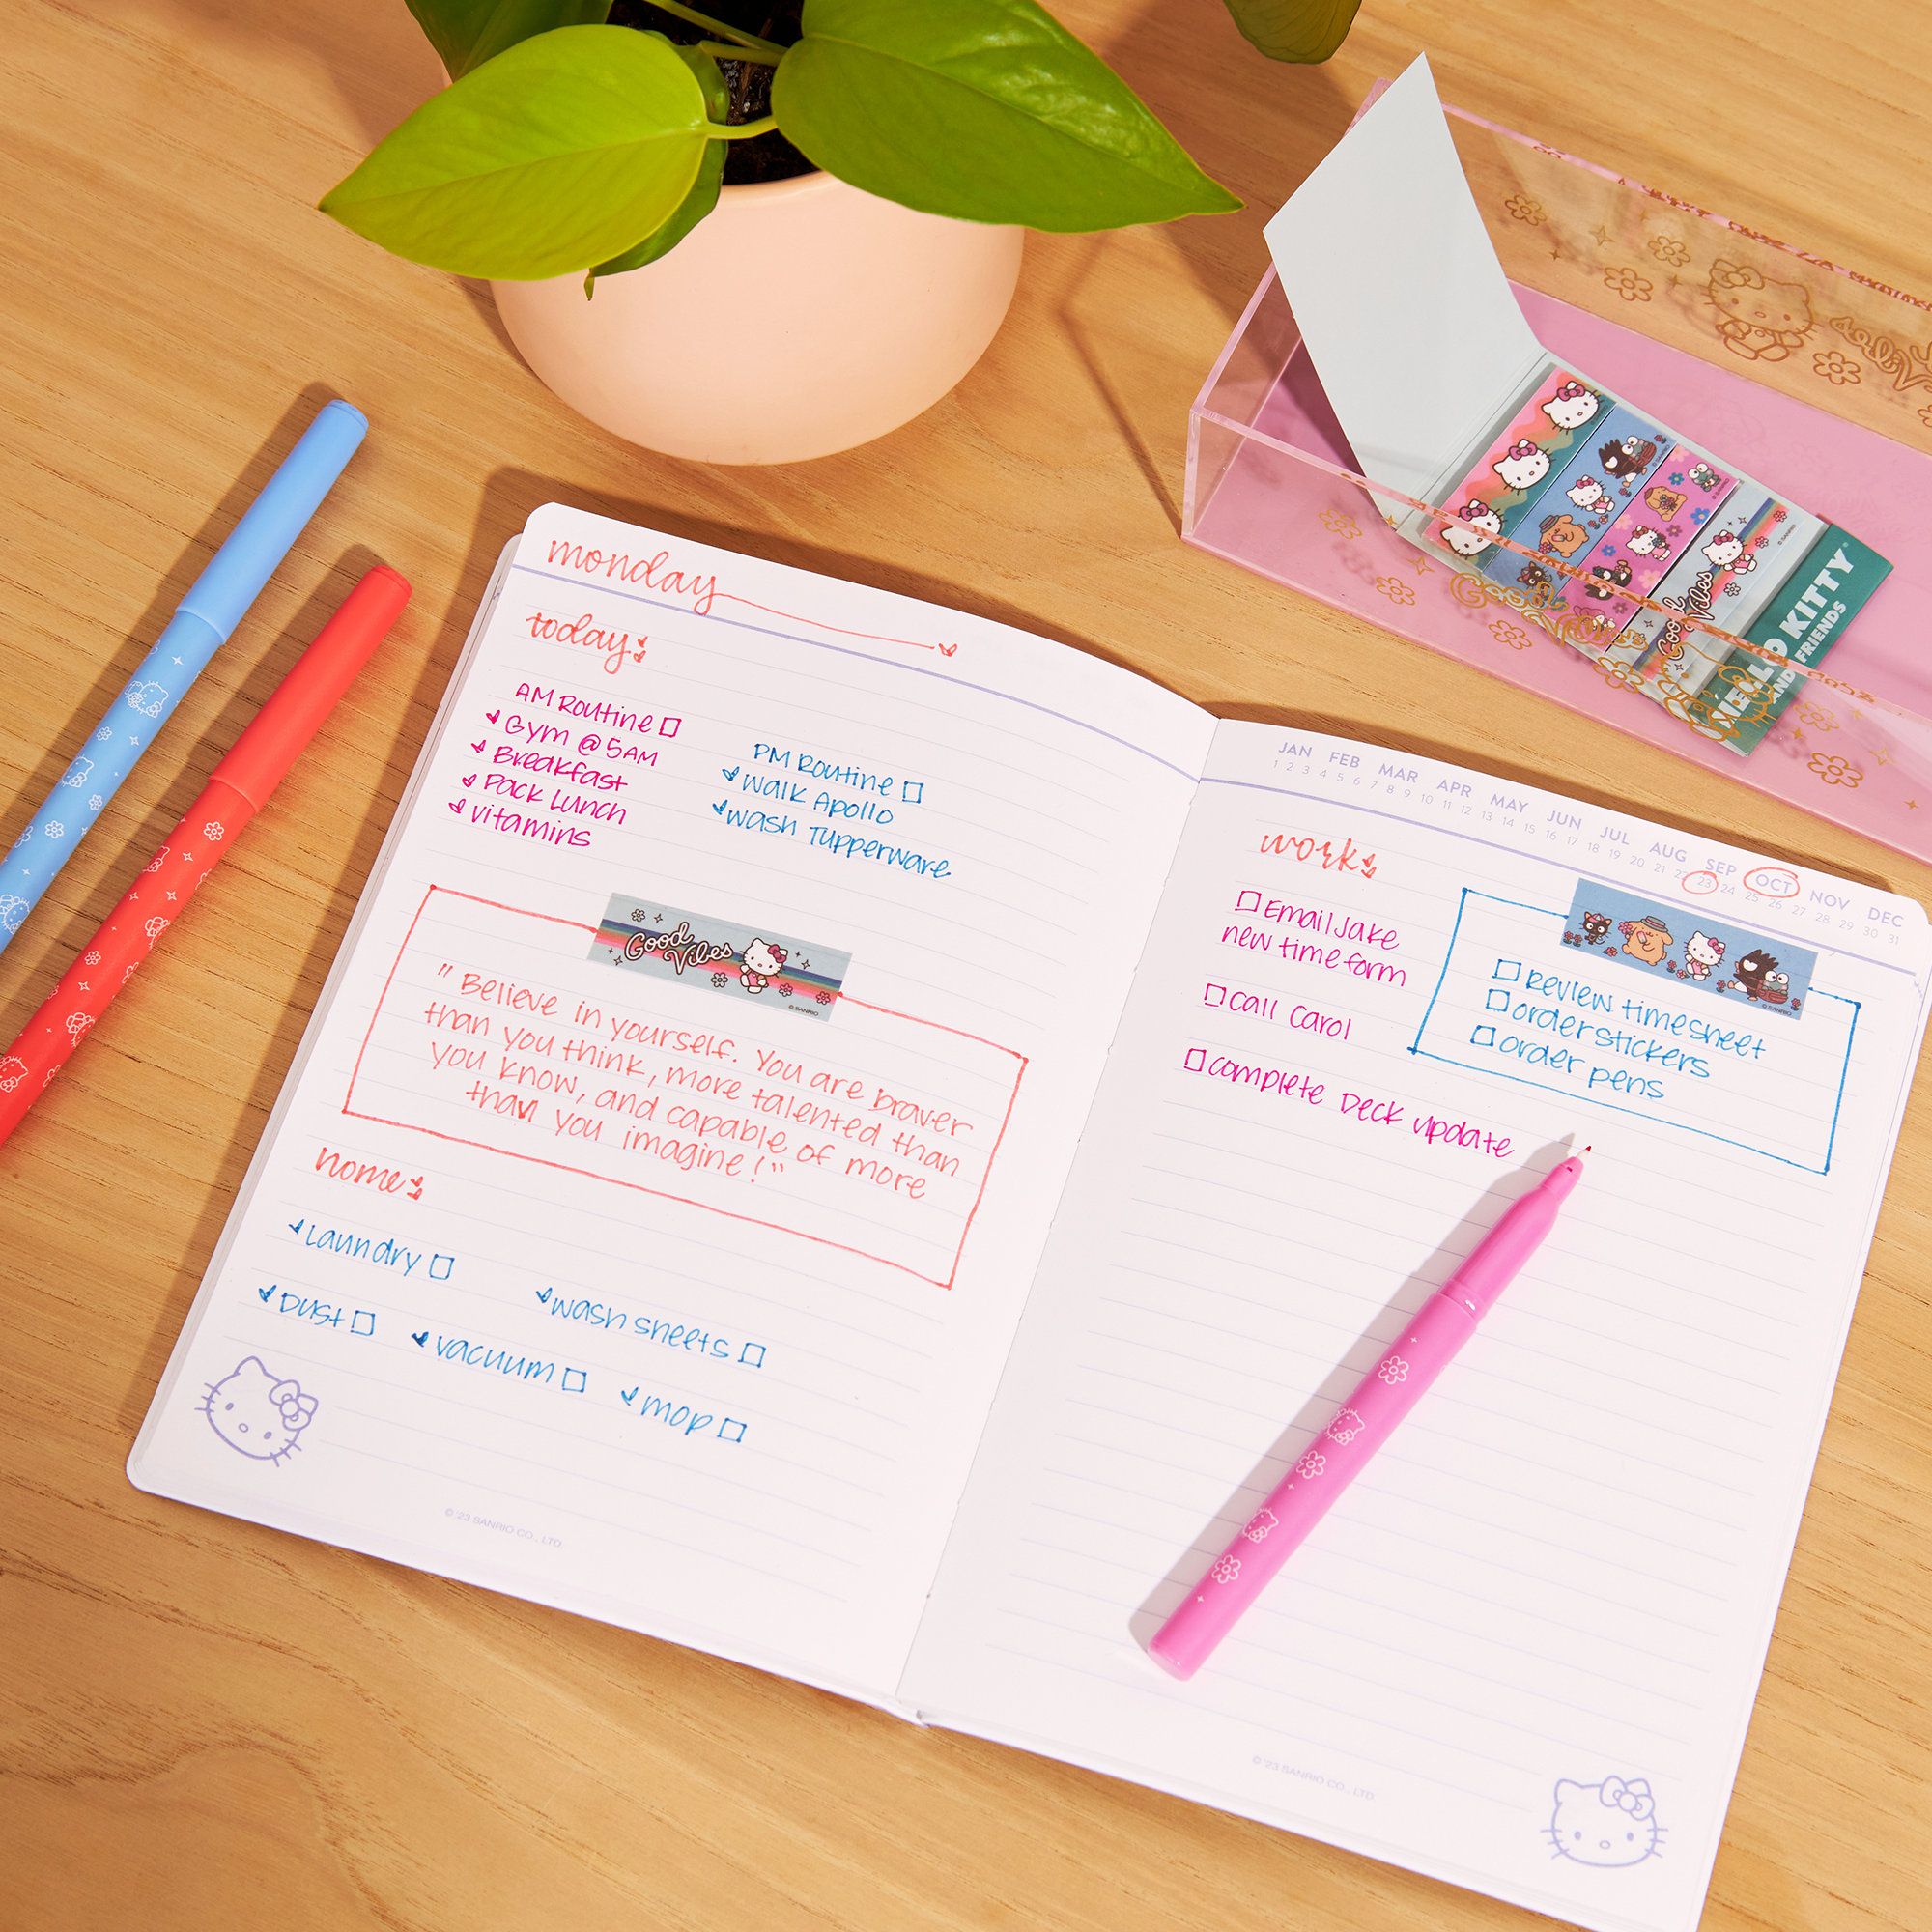 monday
today:
AM Routine
Gym @ 5AM
Breakfast
Pack Lunch
vitamins
PM Routine
Walk Apollo
wash Tupperware
Good
Vibes
© SANRIO
" Believe in yourself. You are braver
than you think, more talented than
you know, and capable of more
than you imagine! "
home:
Laundry
wash sheets
Dust
vacuum
mop
© '23 SANRIO CO., LTD.
JAN FEB MAR APR MAY JUN JUL AUG SEP OCT NOV DEC
1 2 3 4 5 6 7 8 9 10 11 12 13 14 15 16 17 18 19 20 21 22 23 24 25 26 27 28 29 30 31
work:
Email Jake
new time form
Call Carol
complete Deck update
Review timesheet
order stickers
order pens
© '23 SANRIO CO., LTD.
Good
Vibes
HELLO KITTY
AND FRIENDS